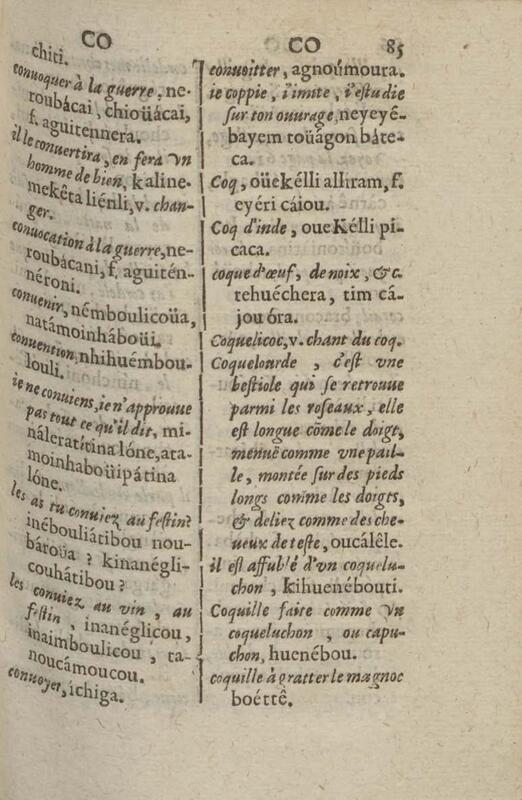 CO
chiti.
conuoquer à la guerre, ne-
roubácai, chioüácai,
f. aguitennera.
il le conuertira, en fera vn
homme de bien, kaline-
mekêta liénli, v. chan-
ger.
conuocation à la guerre, ne-
roubácani, f. aguitén-
néroni.
conuenir, némboulicoüa,
natámoinháboüi.
conuention, nhihuémbou-
louli.
ie ne conuiens, ie n'approuue
pas tout ce qu'il dit, mi-
náleratitina lóne, ata-
moinhaboüipátina
lóne.
les as tu conuiez au festin?
inébouliátibou nou-
bároüa ? kinanégli-
couhátibou ?
les conuiez au vin, au
festin, inanéglicou,
inaimboulicou, ta-
noucámoucou.
conuoyer, ichiga.
CO 85
conuoitter, agnoúmoura.
ie coppie, i'imite, i'estudie
sur ton ouurage, neyeyé-
bayem toüágon báte-
ca.
Coq, oüekélli alhram, f.
eyéri cáiou.
Coq d'inde, oueKélli pi-
caca.
coque d'œuf, de noix, &c.
tehuéchera, tim cá-
jou óra.
Coquelicoc, v. chant du coq.
Coquelourde, c'est vne
bestiole qui se retrouue
parmi les roseaux, elle
est longue cõme le doigt,
menuë comme vne pail-
le, montée sur des pieds
longs comme les doigts,
& deliez comme des che-
ueux de teste, oucálêle.
il est affublé d'vn coquelu-
chon, kihuenébouti.
Coquille faire comme vn
coqueluchon, ou capu-
chon, huenébou.
coquille à gratter le magnoc
boéttê.